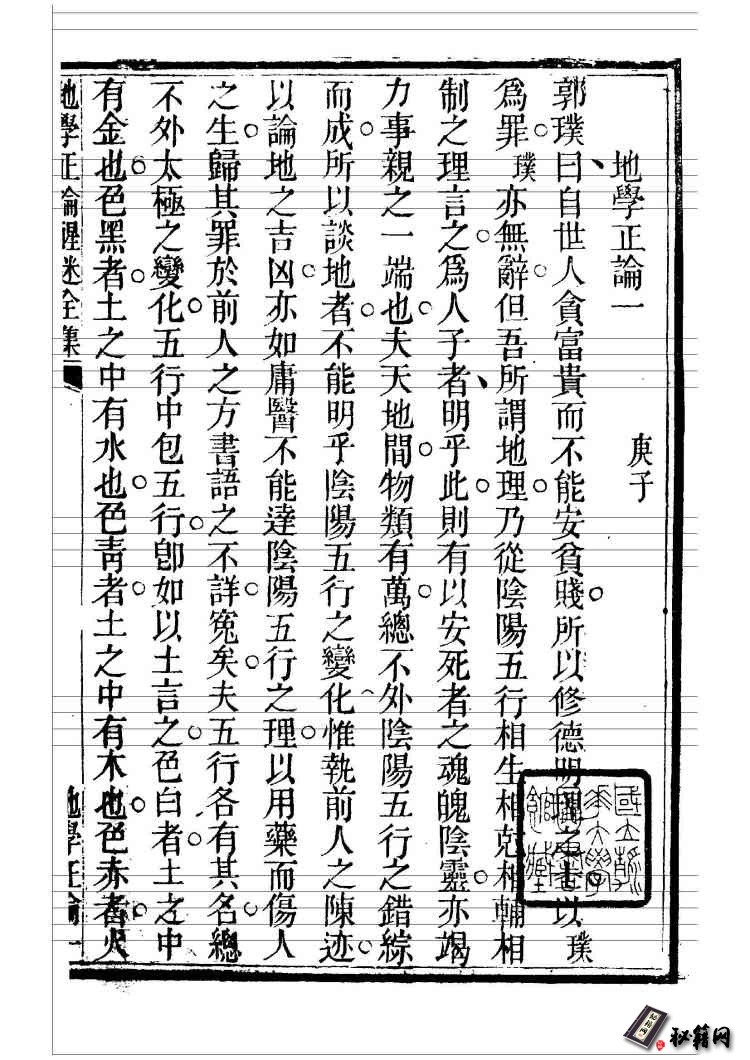 地學正論一　　　庚子
郭璞曰自世人貪富貴而不能安貧賤。所以修德明理之士以璞
爲罪璞亦無辭。但吾所謂地理。乃從陰陽五行相生相尅相輔相
制之理言之。爲人子者明乎此。則有以安死者之魂魄陰靈。亦竭
力事親之一端也。夫天地間。物類有萬。總不外陰陽五行之錯綜
而成。所以談地者。不能明乎陰陽五行之變化。惟執前人之陳迹。
以論地之吉凶。亦如庸醫不能達陰陽五行之理。以用藥而傷人
之生。歸其罪於前人之方書語之不詳。寃矣。夫五行各有其名。總
不外太極之變化。五行中包五行。卽如以土言之。色白者。土之中
有金也。色黑者。土之中有水也。色靑者。土之中有木也。色赤者。火
地學正論醒迷全集
地學正論一
國立清
華大學
圖書
館藏
秘籍网